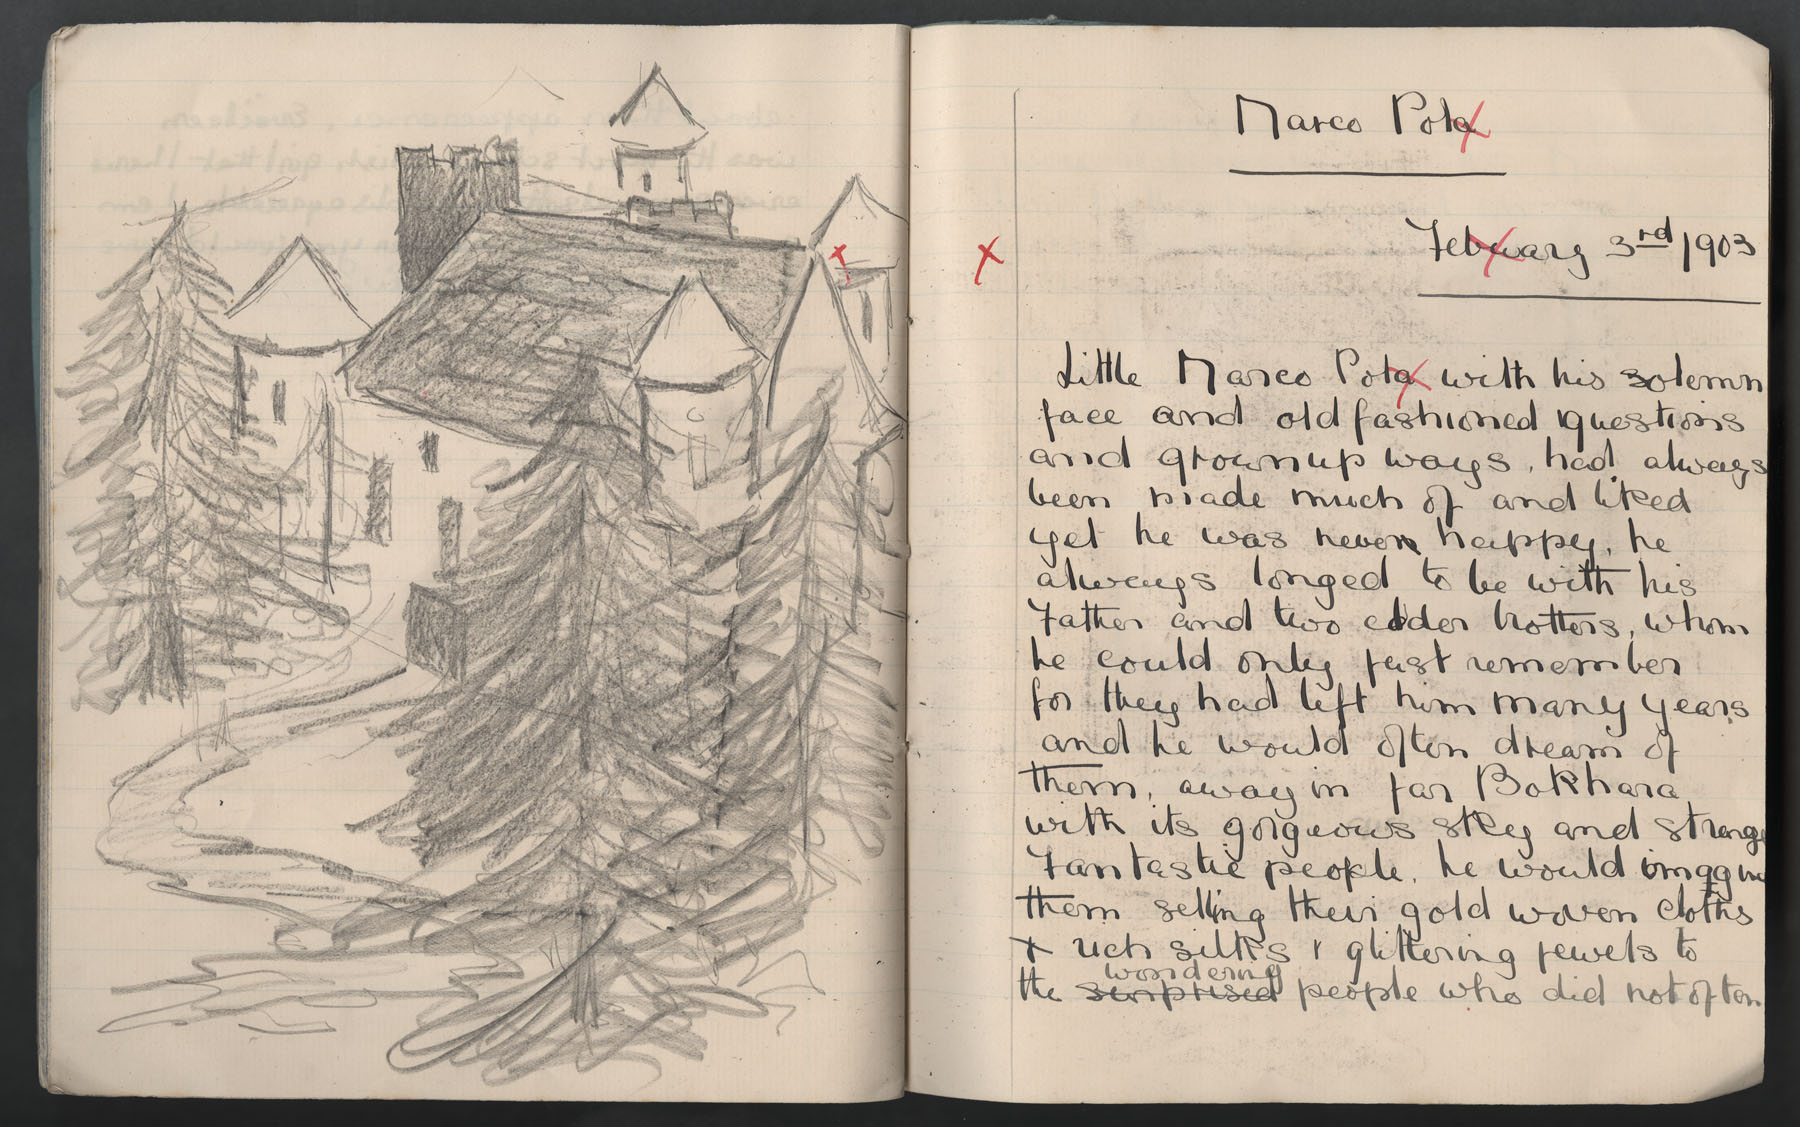 Marco Pola
February 3rd 1903
Little Marco Pola with his solemn
face and old fashioned questions
and grownup ways, had always
been made much of and liked
yet he was never happy, he
always longed to be with his
Father and two elder brothers, whom
he could only just remember
for they had left him many years
and he would often dream of
them, away in far Bokhara
with its gorgeous sky and strange
Fantastic people. he would
them selling their gold woven cloths
+ rich silks + glittering jewels to
wondering
the surprised people who did not often